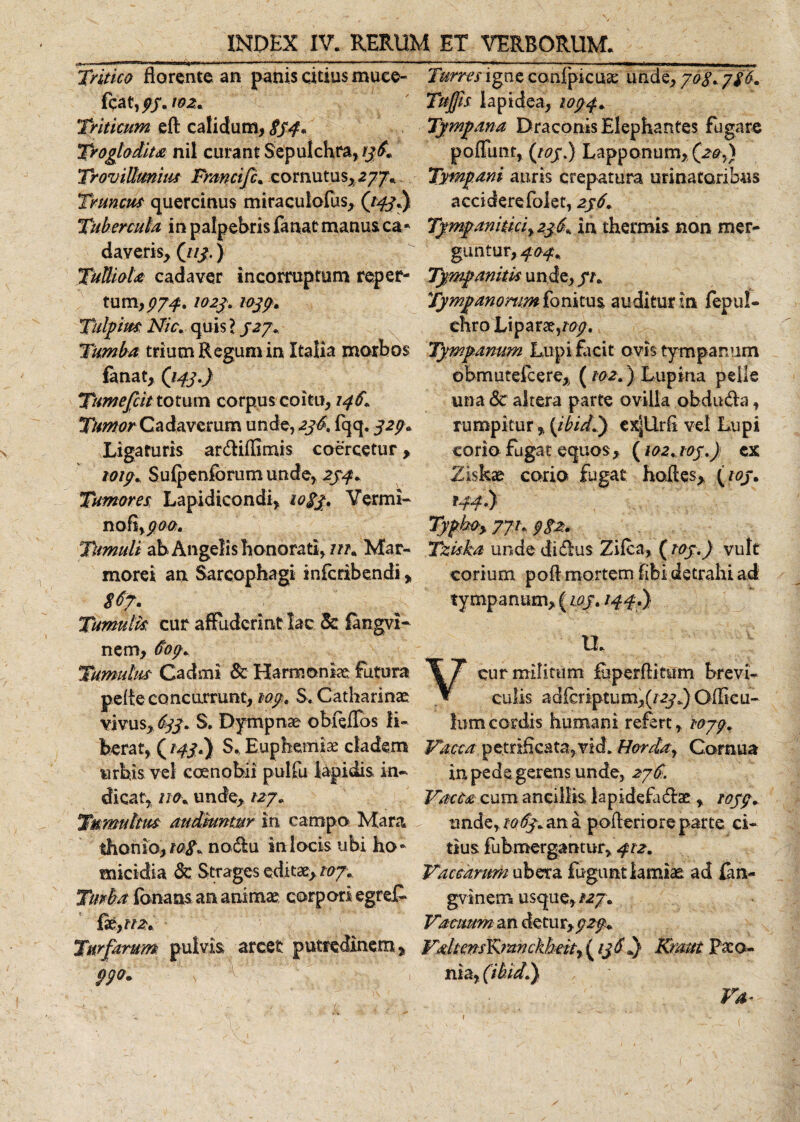 INDEX IV. RERUM ET VERBORUM.
Tritico florente an panis citius muce-
ſcat, 95. 102.
Triticum eſt calidum, 854.
Trogloditæ nil curant Sepulchra, 136.
Trovillunius Franciſc. cornutus, 277.
Truncus quercinus miraculoſus, (143.)
Tubercula in palpebris ſanat manus ca-
daveris, (113.)
Tulliolæ cadaver incorruptum reper-
tum, 974. 1023. 1039.
Tulpius Nic. quis? 527.
Tumba trium Regum in Italia morbos
ſanat, (143.)
Tumeſcit totum corpus coitu, 146.
Tumor Cadaverum unde, 236. ſqq. 329.
Ligaturis arctiſſimis coërcetur,
1019. Suſpenſorum unde, 254.
Tumores Lapidicondi, 1083. Vermi-
noſi, 900.
Tumuli ab Angelis honorati, 111. Mar-
morei an Sarcophagi inſcribendi,
867.
Tumulis cur affuderint lac & ſangvi-
nem, 609.
Tumulus Cadmi & Harmoniæ futura
peſte concurrunt, 109. S. Catharinæ
vivus, 633. S. Dympnæ obſeſſos li-
berat, (143.) S. Euphemiæ cladem
urbis vel cœnobii pulſu lapidis in-
dicat, 110. unde, 127.
Tumultus audiuntur in campo Mara
thonio, 108. noctu in locis ubi ho-
micidia & Strages editæ, 107.
Turba ſonans an animæ corpori egreſ-
ſæ, 112.
Turfarum pulvis arcet putredinem,
990.
Turres igne conſpicuæ unde, 708. 786.
Tuſſis lapidea, 1094.
Tympana Draconis Elephantes fugare
poſſunt, (105.) Lapponum, (20,)
Tympani auris crepatura urinatoribus
accidere ſolet, 256.
Tympanitici, 236. in thermis non mer-
guntur, 404.
Tympanitis unde, 51.
Tympanorum ſonitus auditur in ſepul-
chro Liparæ, 109.
Tympanum Lupi facit ovis tympanum
obmuteſcere, (102.) Lupina pelle
una & altera parte ovilla obducta,
rumpitur, (ibid.) ex Urſi vel Lupi
corio fugat equos, (102. 105.) ex
Ziskæ corio fugat hoſtes, (105.
144.)
Typho, 771. 982.
Tziska unde dictus Ziſca, (105.) vult
corium poſt mortem ſibi detrahi ad
tympanum, (105. 144.)
U.
V cur militum ſuperſtitum brevi-
culis adſcriptum, (123.) Oſſicu-
lum cordis humani refert, 1079.
Vacca petrificata, vid. Horda, Cornua
in pede gerens unde, 276.
Vaccæ cum ancillis lapidefactæ, 1059.
unde, 1063. an a poſteriore parte ci-
tius ſubmergantur, 412.
Vaccarum ubera ſugunt lamiæ ad ſan-
gvinem usque, 127.
Vacuum an detur, 929.
VæltensKranckheit, (136.) Kraut Pæo-
nia, (ibid.)
Va-